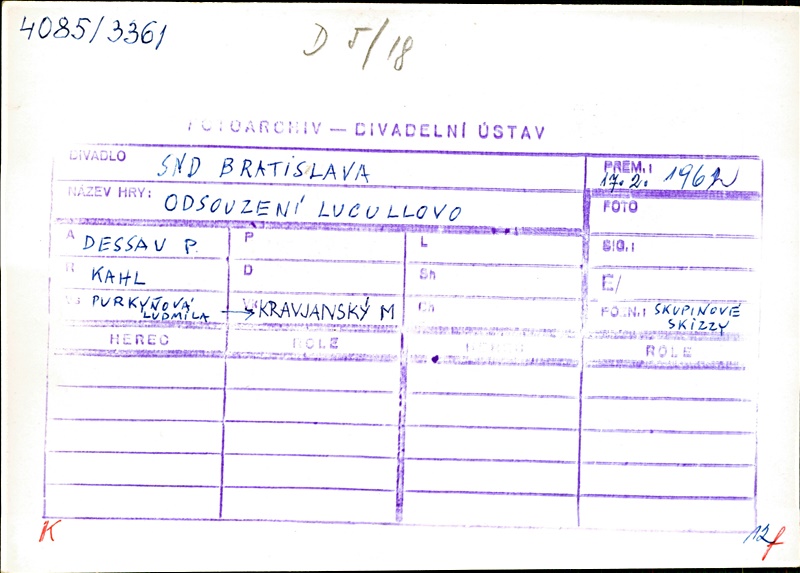 4085/3361
D 5/18
FOTOARCHIV — DIVADELNÍ ÚSTAV
DIVADLO SND BRATISLAVA
PREM.: 17.2. 1962
NÁZEV HRY: ODSOUZENÍ LUCULLOVO
FOTO
A DESSAU P.
P
L
SIG.:
R KAHL
D
Sh
E/
PURKYŇOVÁ LUDMILA → KRAVJANSKÝ M
Ch
POZN.: SKUPINOVÉ SKIZZY
HEREC
ROLE
HEREC
ROLE
K
12
f